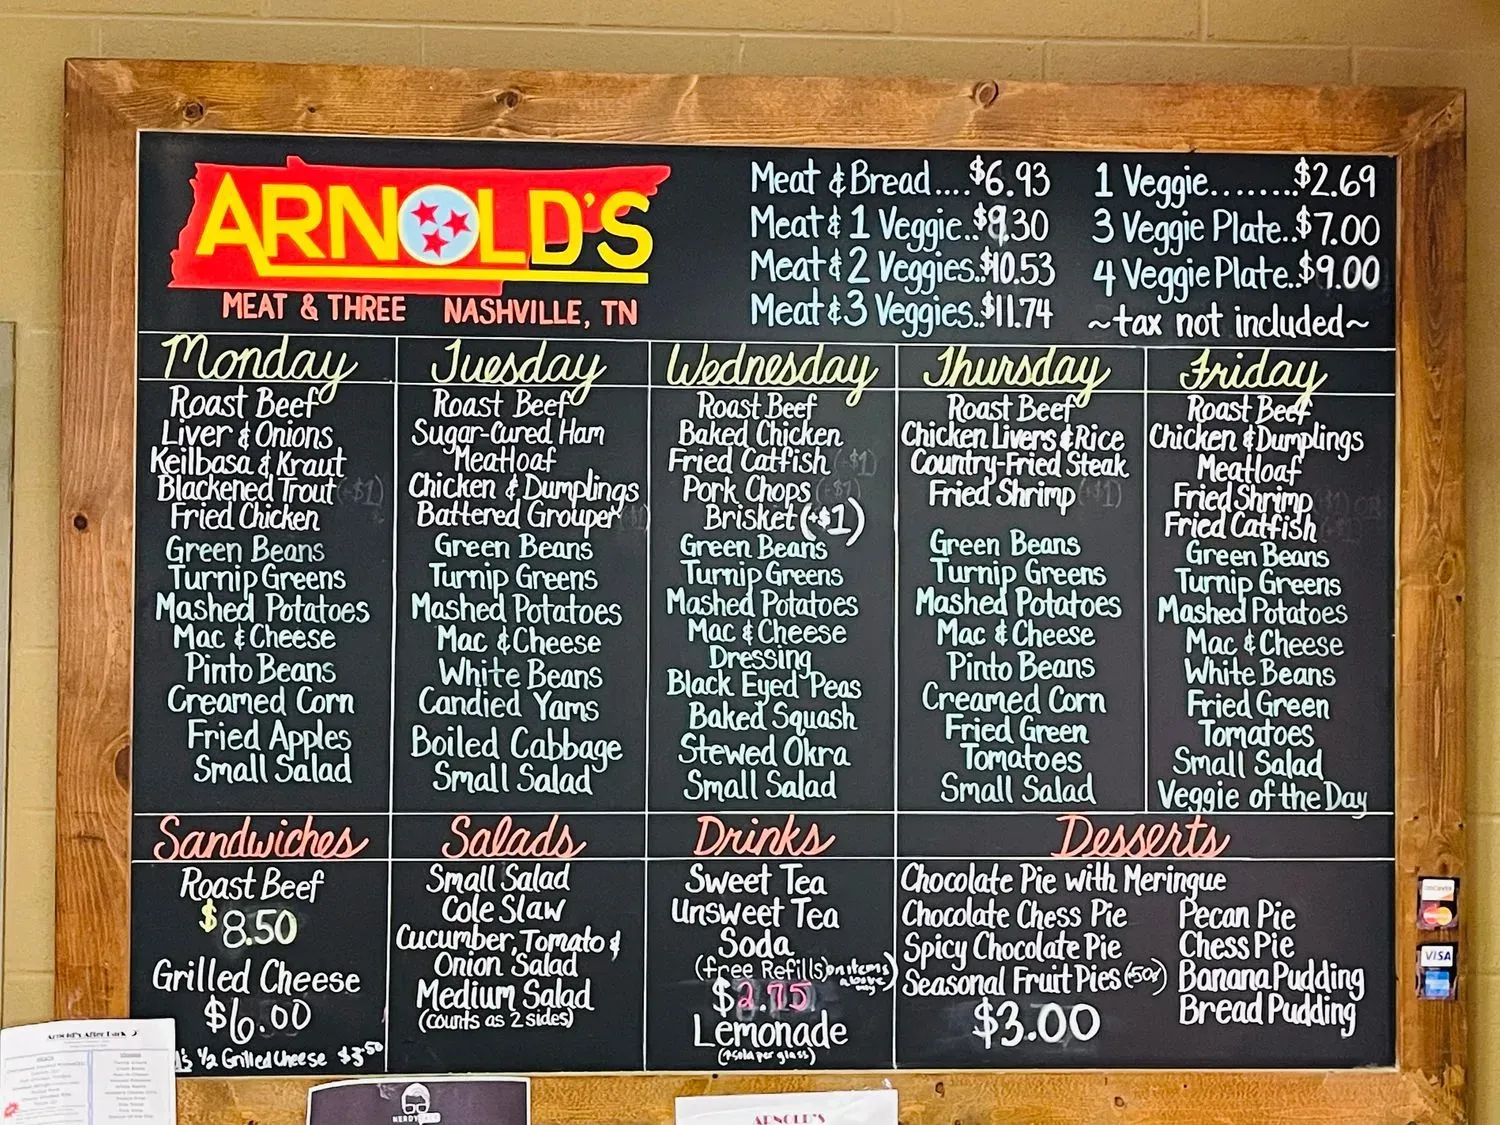 ARNOLD'S
MEAT & THREE NASHVILLE, TN
Meat & Bread....$6.93
Meat & 1 Veggie..$9.30
Meat & 2 Veggies..$10.53
Meat & 3 Veggies..$11.74
1 Veggie.......$2.69
3 Veggie Plate..$7.00
4 Veggie Plate..$9.00
~tax not included~
Monday
Roast Beef
Liver & Onions
Keilbasa & Kraut
Blackened Trout (+$1)
Fried Chicken
Green Beans
Turnip Greens
Mashed Potatoes
Mac & Cheese
Pinto Beans
Creamed Corn
Fried Apples
Small Salad
Tuesday
Roast Beef
Sugar-Cured Ham
Meatloaf
Chicken & Dumplings
Battered Grouper
Green Beans
Turnip Greens
Mashed Potatoes
Mac & Cheese
White Beans
Candied Yams
Boiled Cabbage
Small Salad
Wednesday
Roast Beef
Baked Chicken
Fried Catfish (+$1)
Pork Chops (+$1)
Brisket (+$1)
Green Beans
Turnip Greens
Mashed Potatoes
Mac & Cheese
Dressing
Black Eyed Peas
Baked Squash
Stewed Okra
Small Salad
Thursday
Roast Beef
Chicken Livers & Rice
Country-Fried Steak
Fried Shrimp (+$1)
Green Beans
Turnip Greens
Mashed Potatoes
Mac & Cheese
Pinto Beans
Creamed Corn
Fried Green
Tomatoes
Small Salad
Friday
Roast Beef
Chicken & Dumplings
Meatloaf
Fried Shrimp
Fried Catfish
Green Beans
Turnip Greens
Mashed Potatoes
Mac & Cheese
White Beans
Fried Green
Tomatoes
Small Salad
Veggie of the Day
Sandwiches
Roast Beef
$8.50
Grilled Cheese
$6.00
1/2 Grilled Cheese $3.50
Salads
Small Salad
Cole Slaw
Cucumber, Tomato &
Onion Salad
Medium Salad
(counts as 2 sides)
Drinks
Sweet Tea
Unsweet Tea
Soda
(free Refills) on items above only
$2.75
Lemonade
(*sold per glass)
Desserts
Chocolate Pie with Meringue
Chocolate Chess Pie
Spicy Chocolate Pie
Seasonal Fruit Pies (+50¢)
$3.00
Pecan Pie
Chess Pie
Banana Pudding
Bread Pudding
DISCOVER
VISA
Arnold's After Dark
ARNOLD'S